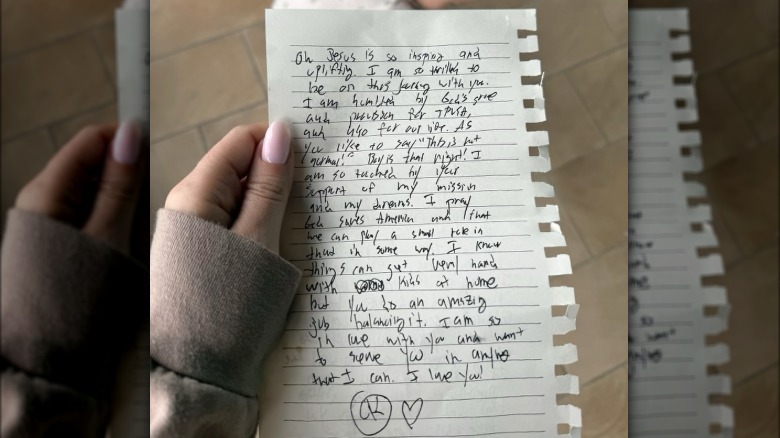 Oh Jesus is so inspiring and
uplifting. I am so thrilled to
be on this journey with you.
I am humbled by God's grace
and provision for TPUSA,
and also for our life. As
you like to say "This is not
normal!" Boy is that right! I
am so touched by your
support of my mission
and my dreams. I pray
God saves America and that
we can play a small role in
that in some way. I know
things can get very hard
with kids at home
but you do an amazing
job balancing it. I am so
in love with you and want
to serve you in anyway
that I can. I love you!
CK ♡